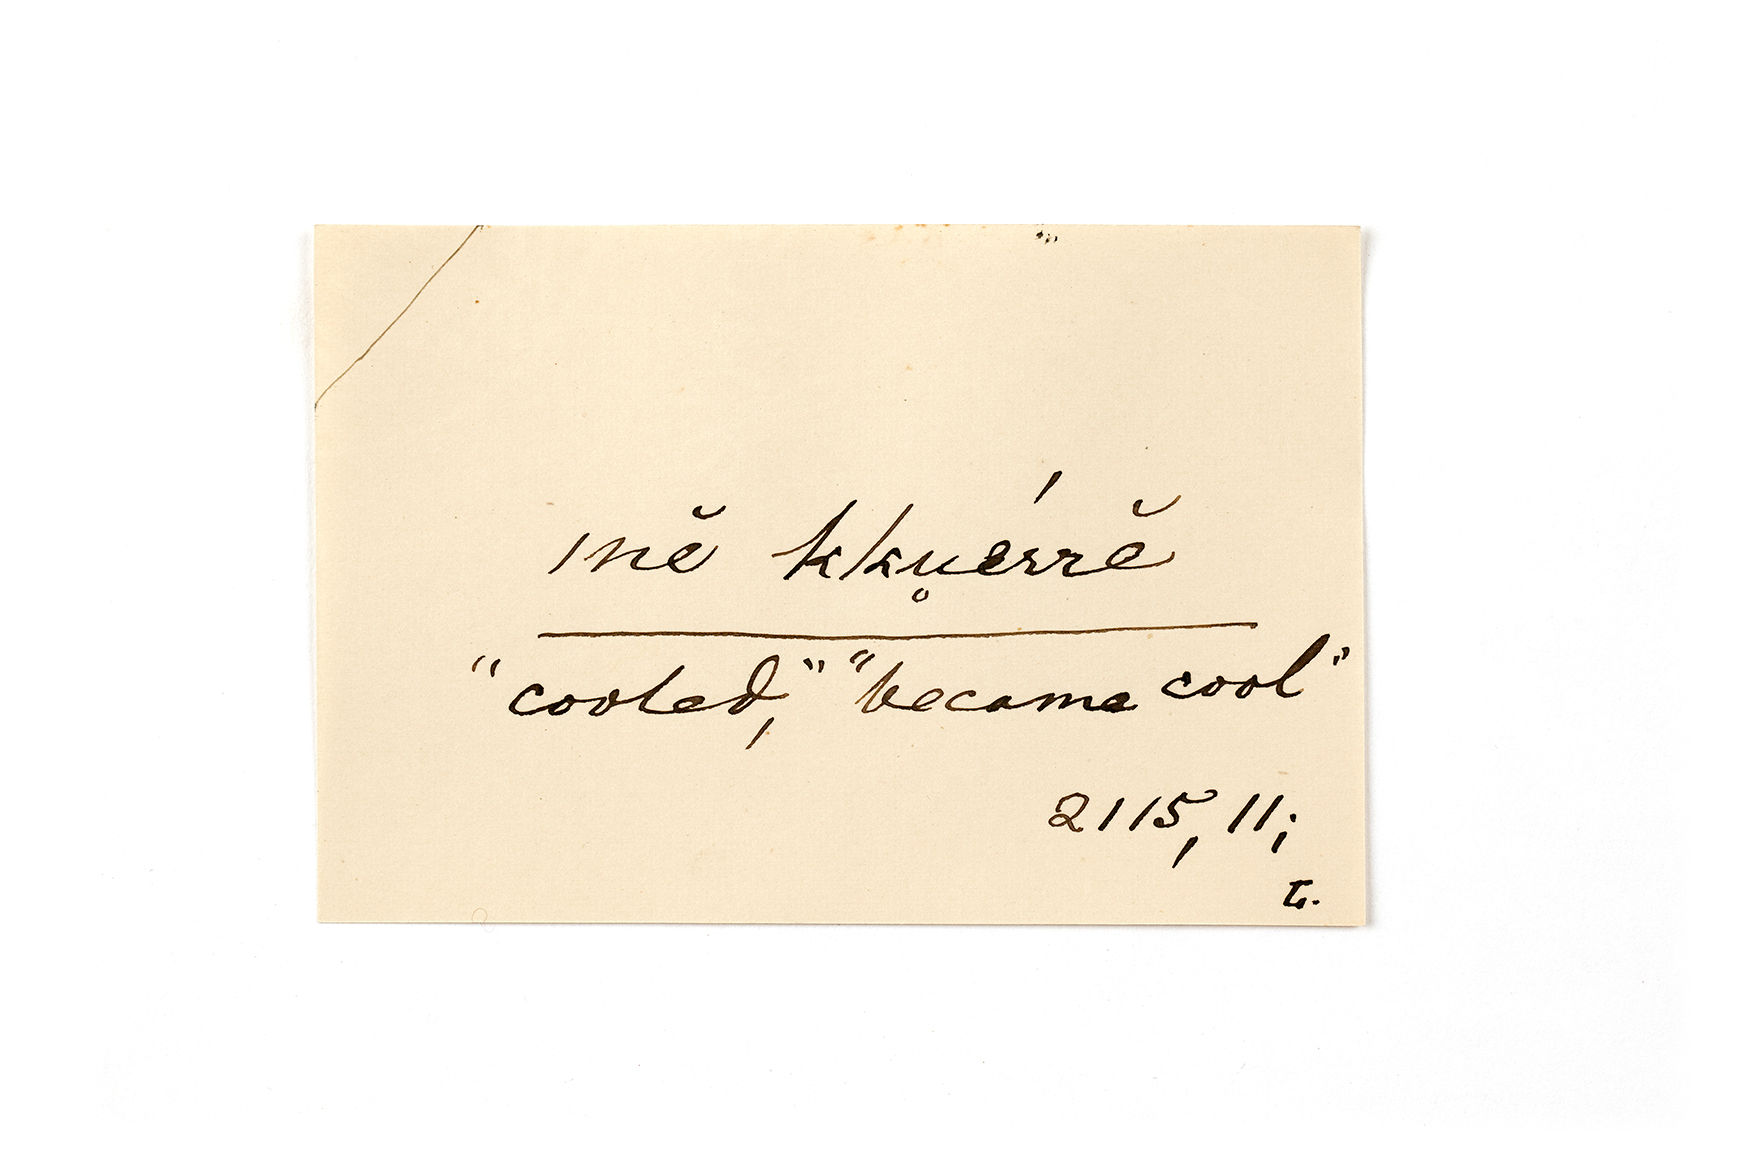 ǀnĕ kǀku̥érrĕ
"cooled," "became cool"
2115, 11;
L.